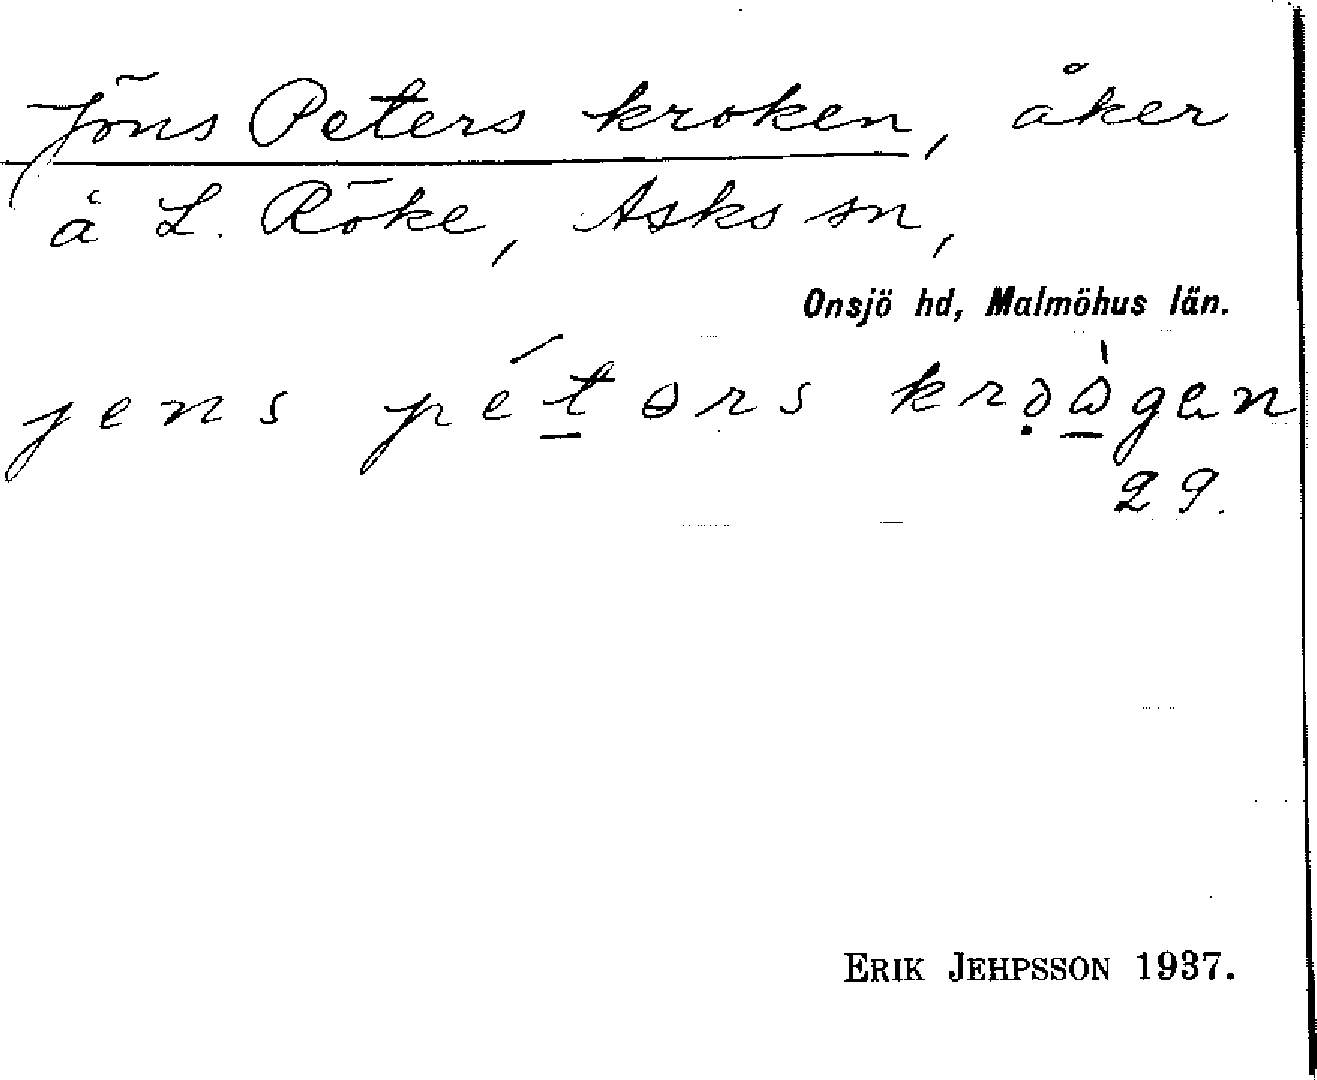 Jöns Peters kroken, åker
å L. Röke, Asks sn,
Onsjö hd, Malmöhus län.
jens pétərs
29.
ERIK JEHPSSON 1937.